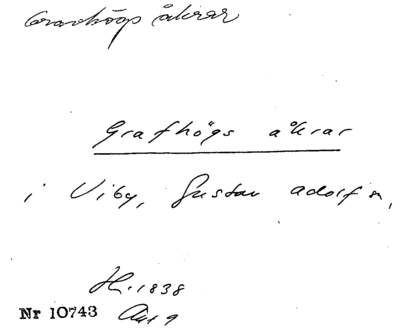 Gravhögs åkrar
Grafhögs åkrar
i Viby, Gustav Adolf s,
H. 1838
Nr 10743 Akt 9